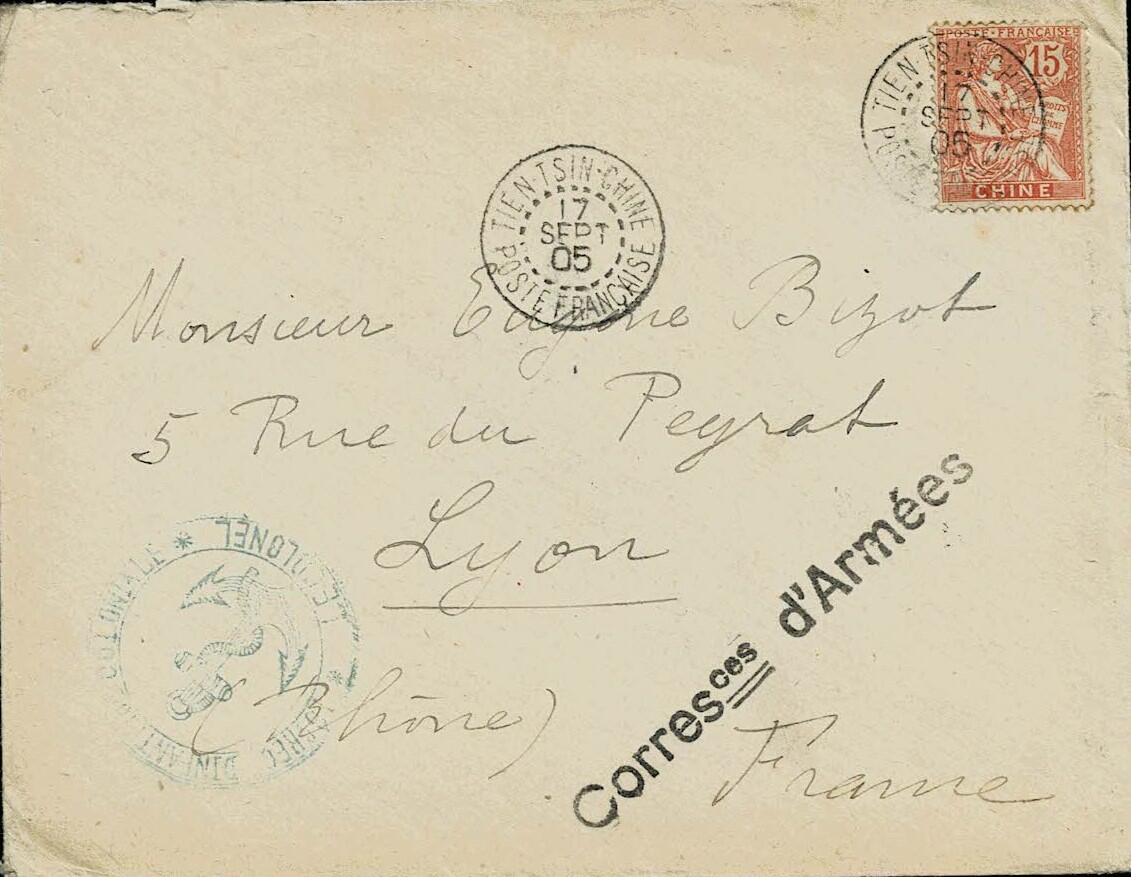 POSTE FRANÇAISE
15
DROITS
DE
L'HOMME
CHINE
TIEN-TSIN-CHINE
17
SEPT
05
TIEN-TSIN-CHINE
17
SEPT
05
POSTE FRANÇAISE
Monsieur Eugène Bizot
5 Rue du Peyrat
Lyon
(Rhône)
France
Corresces d'Armées
COLONIALE * LE COLONEL *